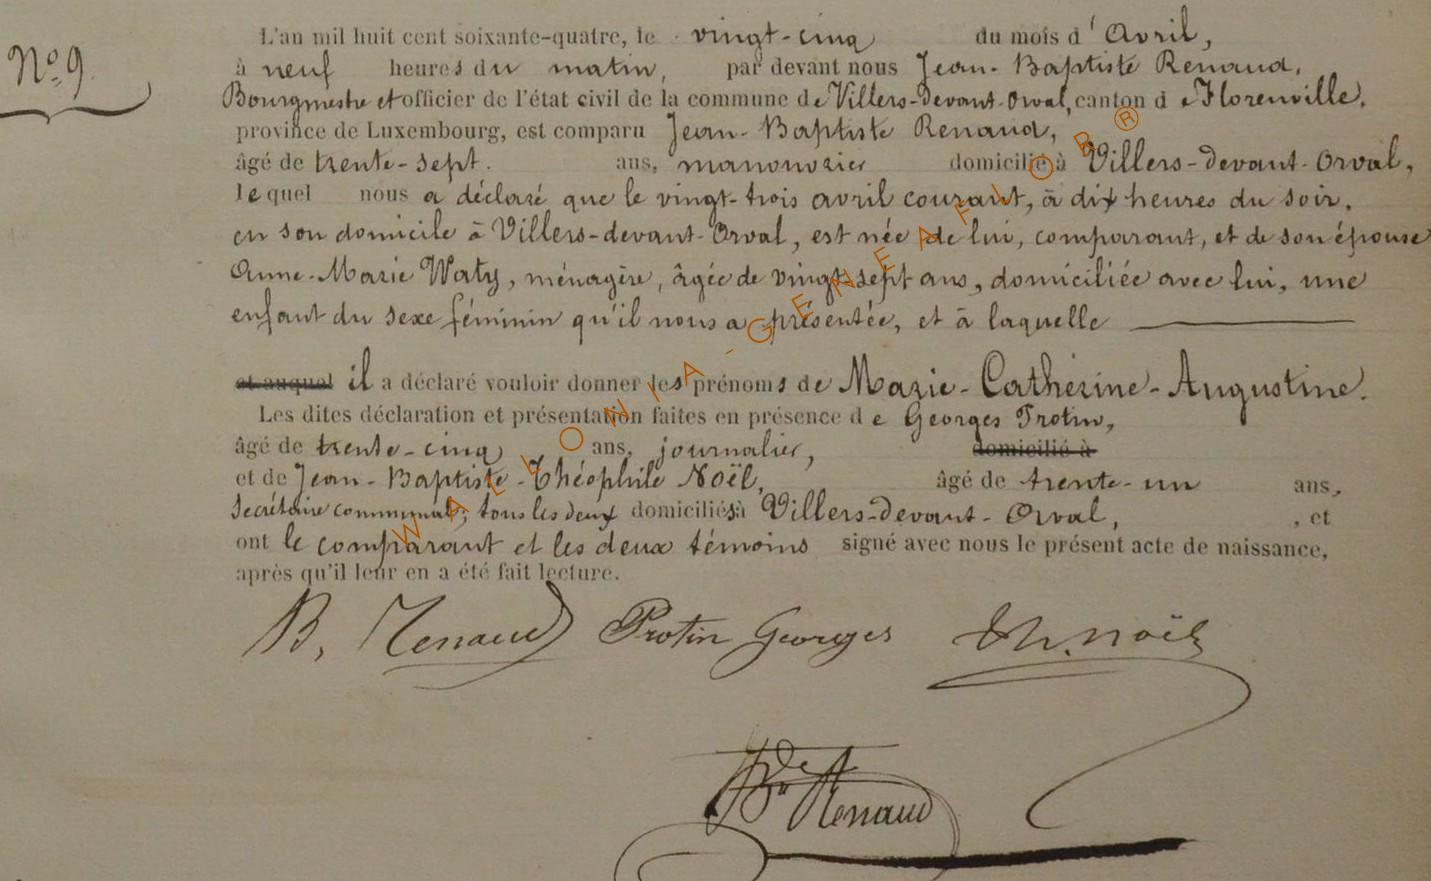 N° 9.
L'an mil huit cent soixante-quatre, le vingt-cinq du mois d'Avril,
à neuf heures du matin, par devant nous Jean-Baptiste Renaud,
Bourgmestre et officier de l'état civil de la commune de Villers-devant-Orval, canton de Florenville,
province de Luxembourg, est comparu Jean-Baptiste Renaud,
âgé de trente-sept ans, manouvrier domicilié à Villers-devant-Orval,
lequel nous a déclaré que le vingt-trois avril courant, à dix heures du soir,
en son domicile à Villers-devant-Orval, est née de lui, comparant, et de son épouse
Anne-Marie Waty, ménagère, âgée de vingt sept ans, domiciliée avec lui, une
enfant du sexe féminin qu'il nous a présentée, et à laquelle
et auquel il a déclaré vouloir donner les prénoms de Marie-Catherine-Augustine.
Les dites déclaration et présentation faites en présence de Georges Protin,
âgé de trente-cinq ans, journalier, domicilié à
et de Jean-Baptiste-Théophile Noël, âgé de trente-un ans,
Secrétaire communal, tous les deux domiciliés à Villers-devant-Orval, , et
ont le comparant et les deux témoins signé avec nous le présent acte de naissance,
après qu'il leur en a été fait lecture.
B. Renaud Protin Georges Th. Noël
Bte Renaud
WALLONIA-GENEAFLOR®